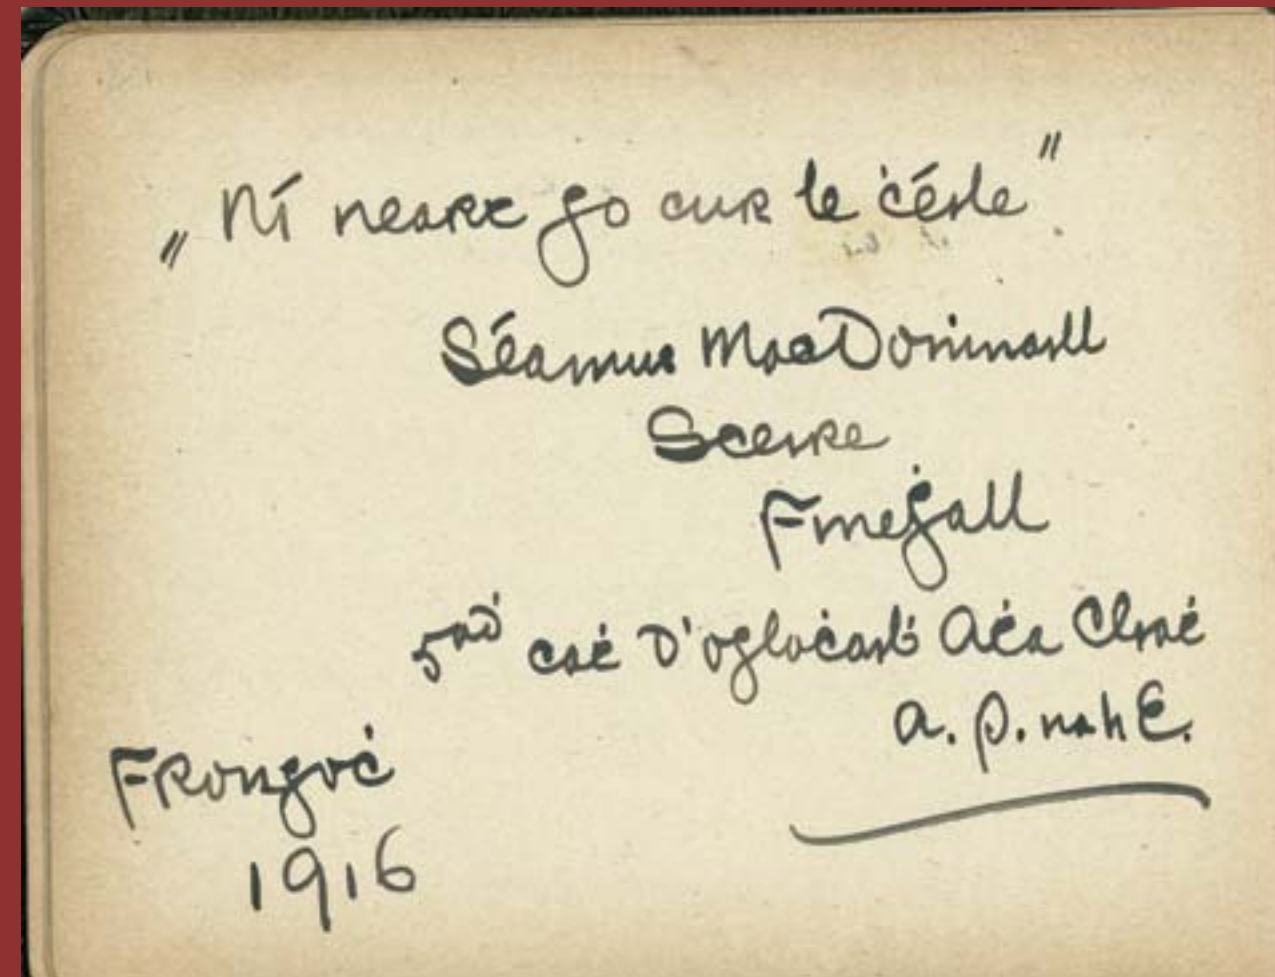 „Ní neart go cur le ċéile"
Séamus MacDoṁnaill
Sceire
Fineġall
5aḋ caṫ D'ogloċaiḃ Aṫa Cliaṫ
A. P. na hE.
Frongoċ
1916